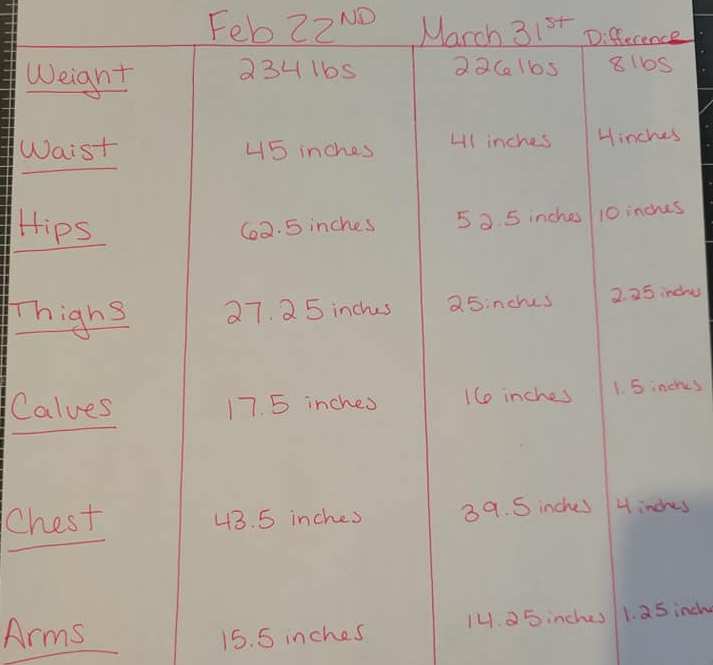 Feb 22ND March 31st Difference
Weight 234 lbs 226 lbs 8 lbs
Waist 45 inches 41 inches 4 inches
Hips 62.5 inches 52.5 inches 10 inches
Thighs 27.25 inches 25 inches 2.25 inches
Calves 17.5 inches 16 inches 1.5 inches
Chest 43.5 inches 39.5 inches 4 inches
Arms 15.5 inches 14.25 inches 1.25 inche